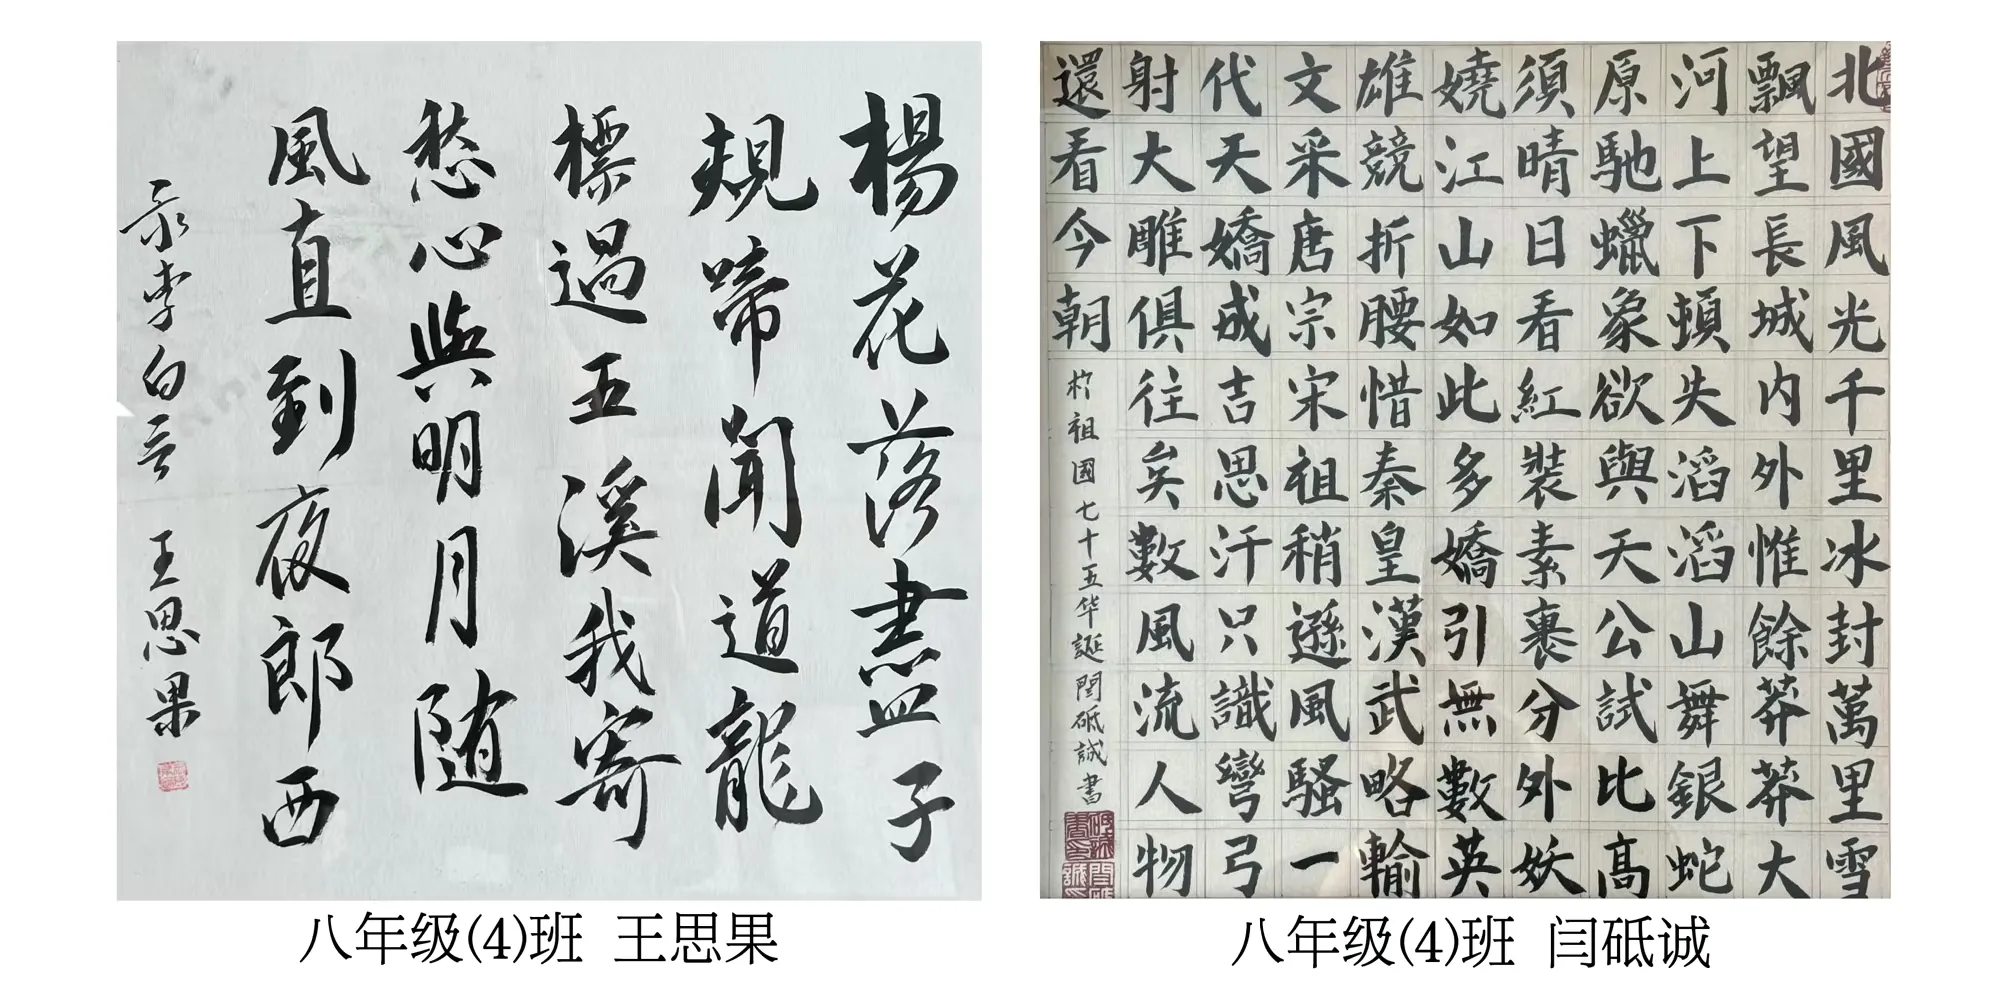 楊花落盡子
規啼聞道龍
標過五溪我寄
愁心與明月随
風直到夜郎西
录李白 王思果
八年级(4)班 王思果
北國風光千里冰封萬里雪
飄望長城内外惟餘莽莽大
河上下頓失滔滔山舞銀蛇
原馳蠟象欲與天公試比高
須晴日看紅裝素裹分外妖
嬈江山如此多嬌引無數英
雄競折腰惜秦皇漢武略輸
文采唐宗宋祖稍遜風騷一
代天嬌成吉思汗只識彎弓
射大雕俱往矣數風流人物
還看今朝
於祖國七十五华誕閆砥誠書
八年级(4)班 闫砥诚